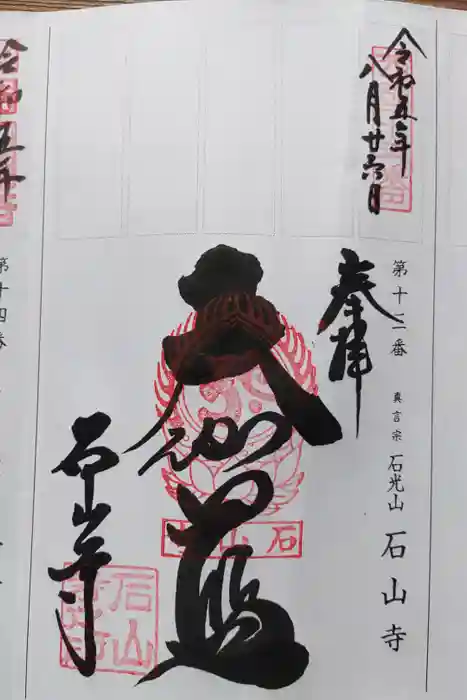 令和五年
八月廿六日
第十三番 真言宗 石光山 石山寺
奉拝
大伽藍
石山
石山寺
令和五年
第十四番